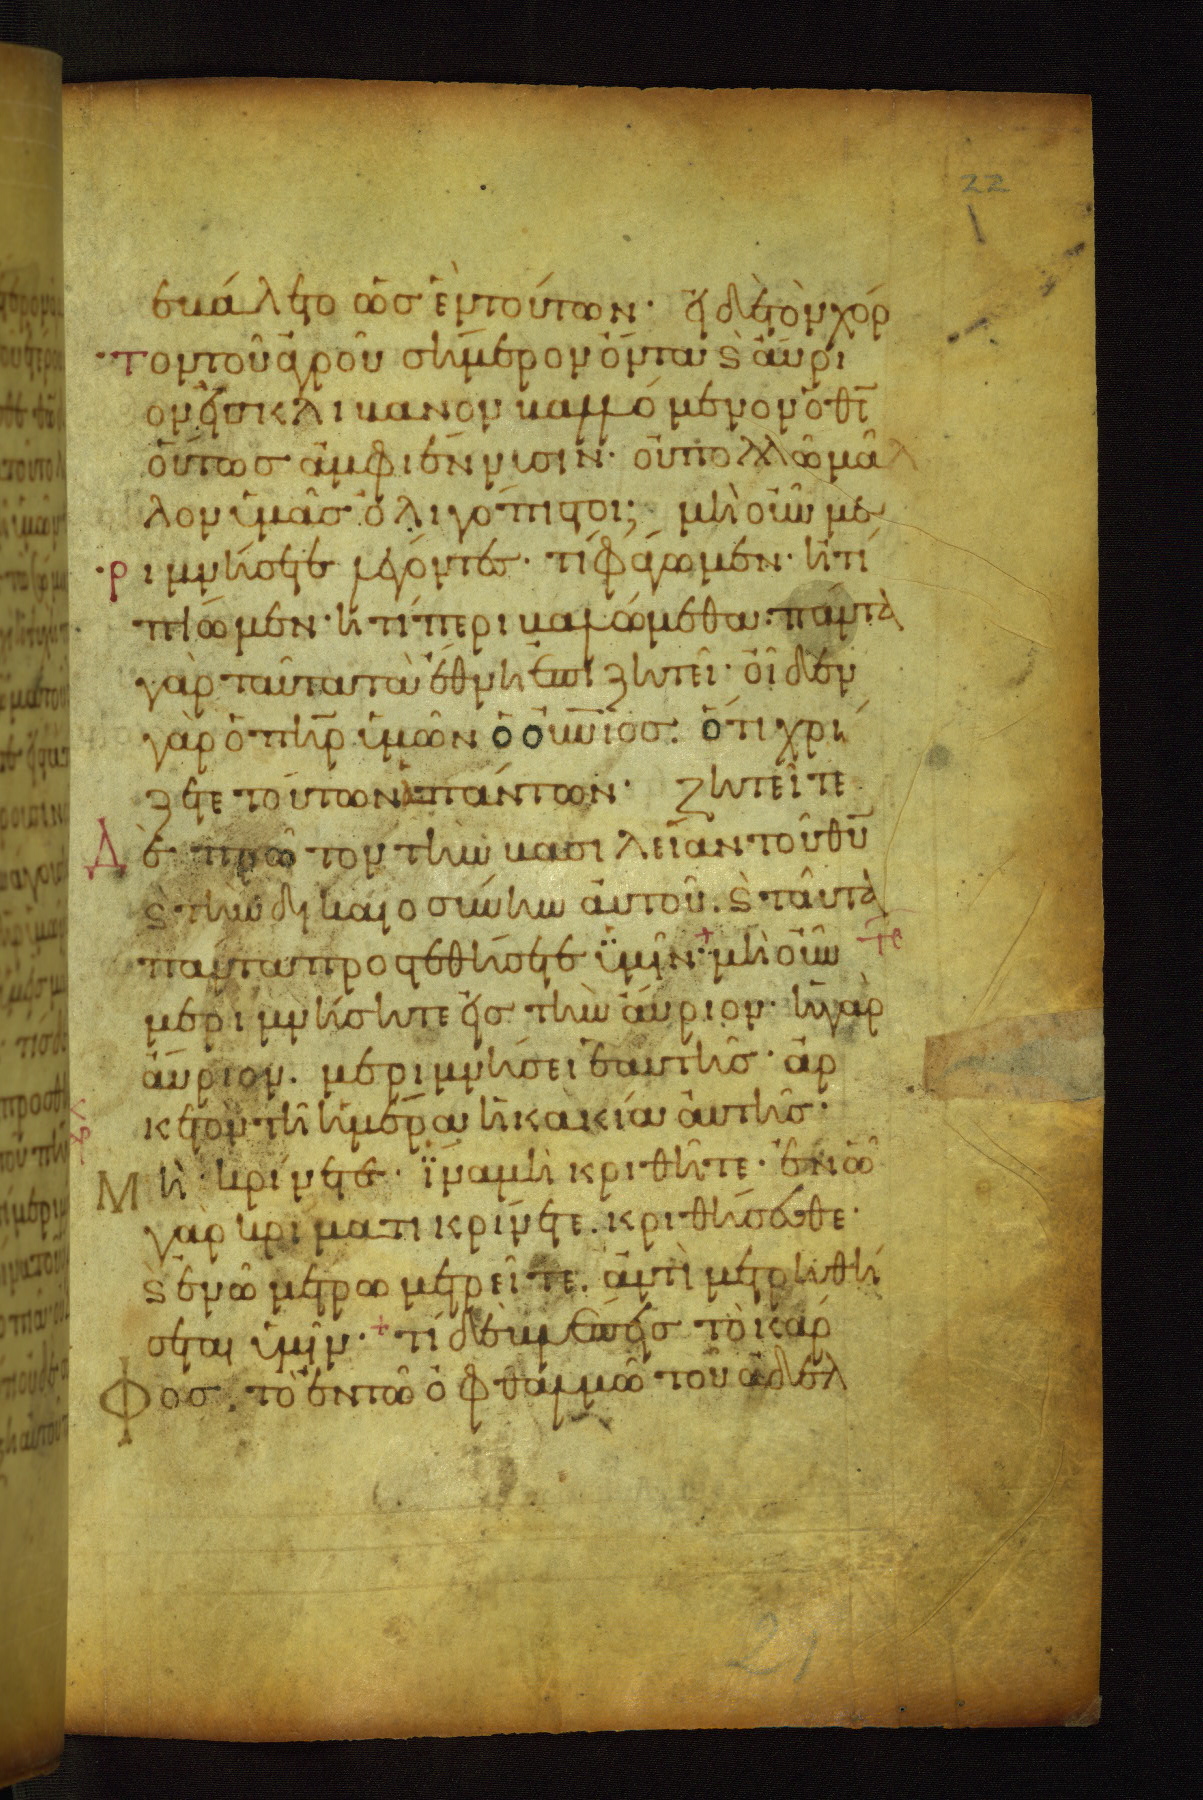 22
εβάλετο ὡς ἓν τούτων· εἰ δὲ τὸν χόρ
τον τοῦ ἀγροῦ σήμερον ὄντα ϗ αὔρι
ον εἰς κλίβανον βαλλόμενον ὁ θς̄
οὕτως ἀμφιέννυσιν· οὐ πολλῶ μᾶλ
λον ὑμᾶς ὀλιγόπιστοι; μὴ οὖν με
ριμνήσητε λέγοντες· τί φάγωμεν· ἢ τί
πίωμεν· ἢ τί περιβαλώμεθα· πάντα
γὰρ ταῦτα τὰ ἔθνη ἐπιζητεῖ· οἶδεν
γὰρ ὁ πη̄ρ ὑμῶν ὁ οὐν̄ιος· ὅτι χρή
ζετε τούτων ἁπάντων· ζητεῖτε
δὲ πρῶτον τὴν βασιλείαν τοῦ θῡ
ϗ τὴν δικαιοσύνην αὐτοῦ· ϗ ταῦτα
πάντα προστεθήσεται ὑμῖν·+ μὴ οὖν τε
μεριμνήσητε εἰς τὴν αὔριον· ἡ γὰρ
αὔριον· μεριμνήσει ἑαυτῆς· ἀρ
κετὸν τῆ ἡμέρα ἡ κακία αὐτῆς·
Μὴ κρίνετε· ἵνα μὴ κριθῆτε· ἐν ὧ
γὰρ κρίματι κρίνετε· κριθήσεσθε·
ϗ ἐν ὧ μέτρω μετρεῖτε· ἀντιμετρηθή
σεται ὑμῖν·+ τί δὲ βλέπεις τὸ κάρ
φος· τὸ ἐν τῶ ὀφθαλμῶ τοῦ ἀδελ
21